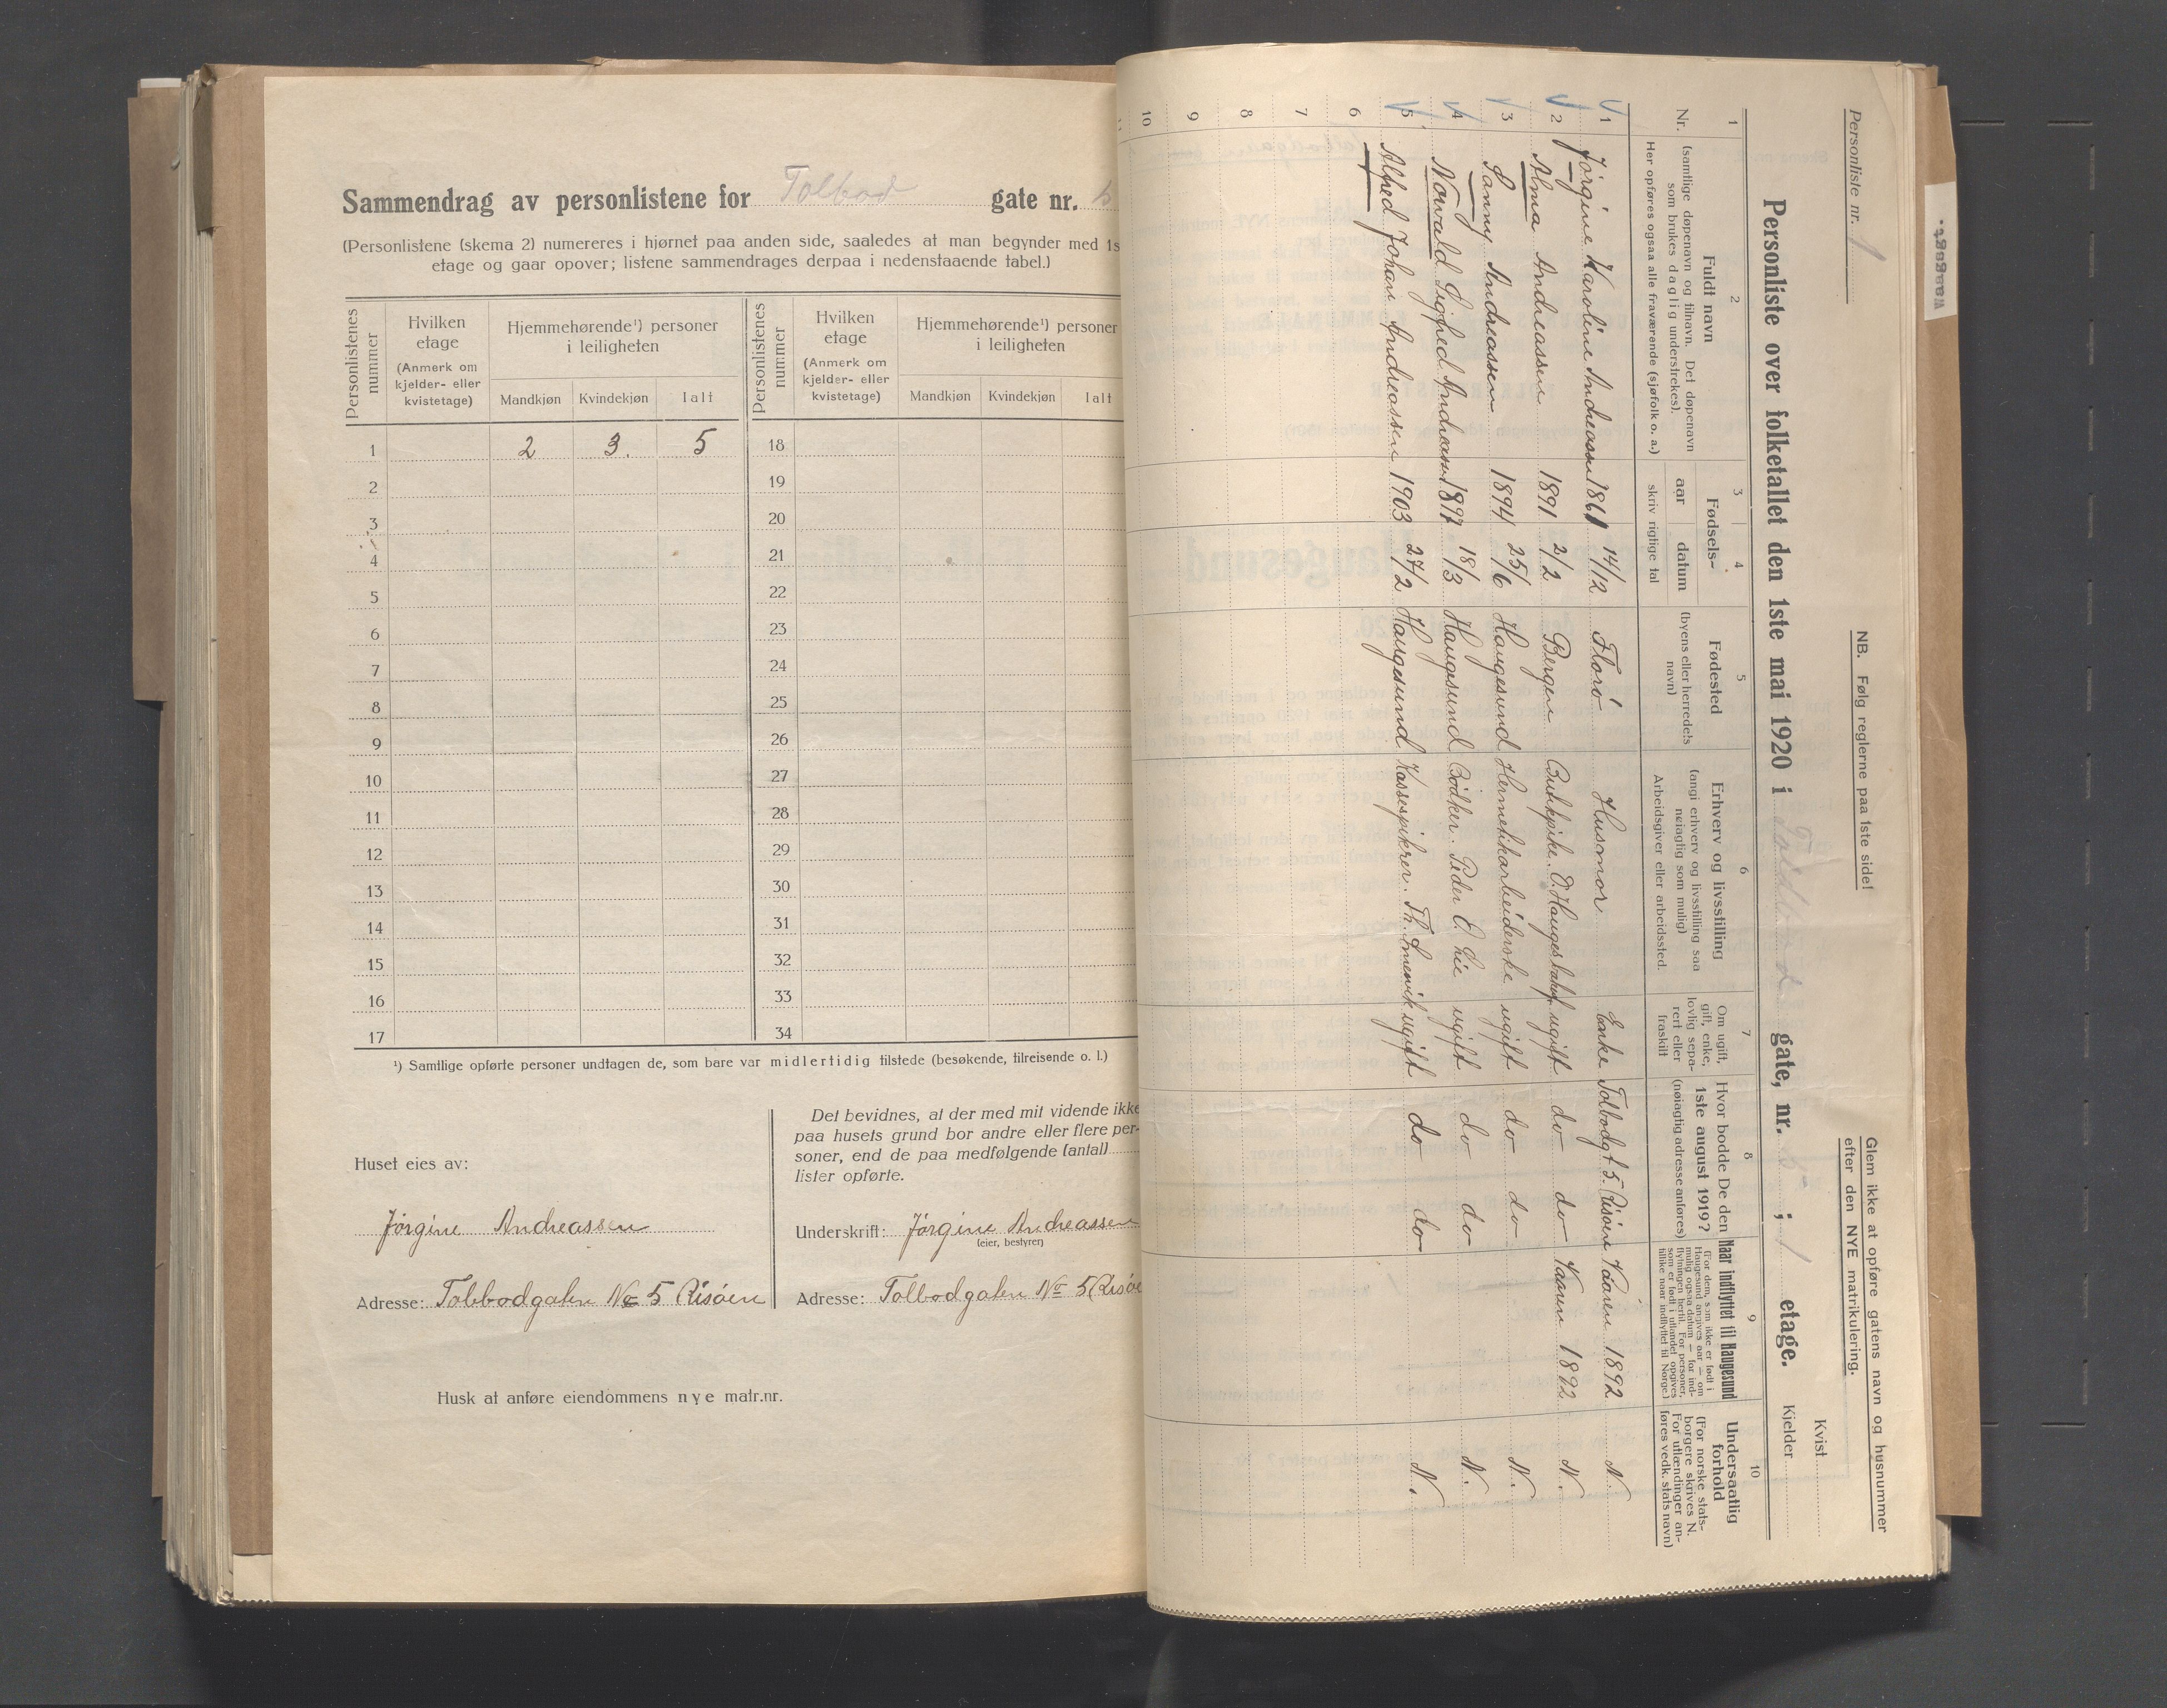 Sammendrag av personlistene for Tolbod gate nr. 5
(Personlistene (skema 2) numereres i hjørnet paa anden side, saaledes at man begynder med 1s
etage og gaar opover; listene sammendrages derpaa i nedenstaaende tabel.)
Personlistenes nummer
Hvilken etage
(Anmerk om kjelder- eller kvistetage)
Hjemmehørende¹) personer i leiligheten
Mandkjøn Kvindekjøn Ialt
Personlistenes nummer
Hvilken etage
(Anmerk om kjelder- eller kvistetage)
Hjemmehørende¹) personer i leiligheten
Mandkjøn Kvindekjøn Ialt
1 2 3. 5 18
2 19
3 20
4 21
5 22
6 23
7 24
8 25
9 26
10 27
11 28
12 29
13 30
14 31
15 32
16 33
17 34
¹) Samtlige opførte personer undtagen de, som bare var midlertidig tilstede (besøkende, tilreisende o. l.)
Huset eies av:
Jørgine Andreassen
Adresse: Tolbodgaten No 5 Risøen
Det bevidnes, at der med mit vidende ikke
paa husets grund bor andre eller flere per-
soner, end de paa medfølgende (antal)
lister opførte.
Underskrift: Jørgine Andreassen
(eier, bestyrer)
Adresse: Tolbodgaten No 5 Risøe
Husk at anføre eiendommens nye matr.nr.
Personliste nr. 1
NB. Følg reglerne paa 1ste side!
Glem ikke at opføre gatens navn og husnummer
efter den NYE matrikulering.
Kvist
Personliste over folketallet den 1ste mai 1920 i gate, nr. 5 ; 1 etage.
Kjelder
1 2 3 4 5 6 7 8 9 10
Nr.
Fuldt navn
(samtlige døpenavn og tilnavn. Det døpenavn
som brukes daglig understrekes).
Her opføres ogsaa alle fraværende (sjøfolk o. a.)
Fødsels-
aar datum
skriv rigtige tal
Fødested
(byens eller herredets
navn)
Erhverv og livsstilling
(angi erhverv og livsstilling saa
nøiagtig som mulig)
Arbeidsgiver eller arbeidssted.
Om ugift,
gift, enke,
lovlig sepa-
rert eller
fraskilt
Hvor bodde De den
1ste august 1919?
(nøiagtig adresse anføres)
Naar indflyttet til Haugesund
(For dem, som ikke er født i
Haugesund angives aar — om
mulig ogsaa datum — for ind-
flytningen hertil. For personer,
som er født i utlandet opgives
tillike naar indflyttet til Norge.)
Undersaatlig
forhold
(For norske stats-
borgere skrives N.
For utlændinger an-
føres vedk. stats navn)
1 Jørgine Karoline Andreassen 1861 14/12 Florø Husmor Enke Tolbodgt 5. Risøen Vaaren 1892 N.
2 Alma Andreassen 1891 2/2 Bergen Butikpike. O. Hauges ugift do do Vaaren 1892 N.
3 Fanny Andreassen 1894 25/6 Haugesund Hermetikarbeiderske ugift do do N.
4 Norvald Sigfred Andreassen 1897 18/3 Haugesund Bødker. Peder O Lie ugift do do N.
5 Alfred Johan Andreassen 1903 27/2 Haugesund Kassespikrer. Th. Smevik ugift do do N.
6
7
8
9
10